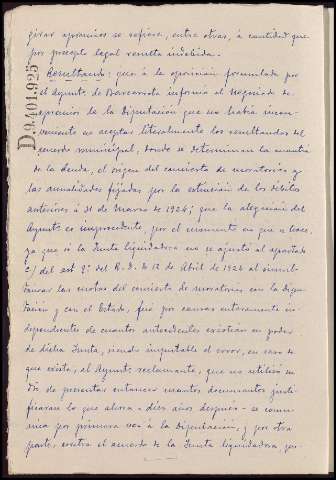 girar apremios se refiere, entre otras, á cantidad que
por precepto legal resulta indebida.
Resultando: que á la oposición formulada por
el Ayunto de Barcarrota informa el Negociado de
apremios de la Diputación que no había incon-
veniente en aceptar literalmente los resultandos del
acuerdo municipal, donde se determinan la cuantía
de la deuda, el origen del concierto de moratorias y
las anualidades fijadas por la extinción de los débitos
anteriores á 31 de Marzo de 1924; que la alegación del
Ayunto es improcedente por el momento en que se hace,
ya que si la Junta liquidadora no se ajustó al apartado
c) del art 9º del R. D. de 12 de Abril de 1924 al simul-
tanear las cuotas del concierto de moratorias con la Dipu-
tación y con el Estado, fué por causas enteramente in-
dependientes de cuantos antecedentes existían en poder
de dicha Junta, siendo imputable el error, en caso de
que exista, al Ayunto reclamante, que no utilizó su
de presentar entonces cuantos documentos justi-
ficaran lo que ahora - diez años después - se comu-
nica por primera vez á la Diputación; y por otra
parte, contra el acuerdo de la Junta liquidadora, por
D.9.401.925